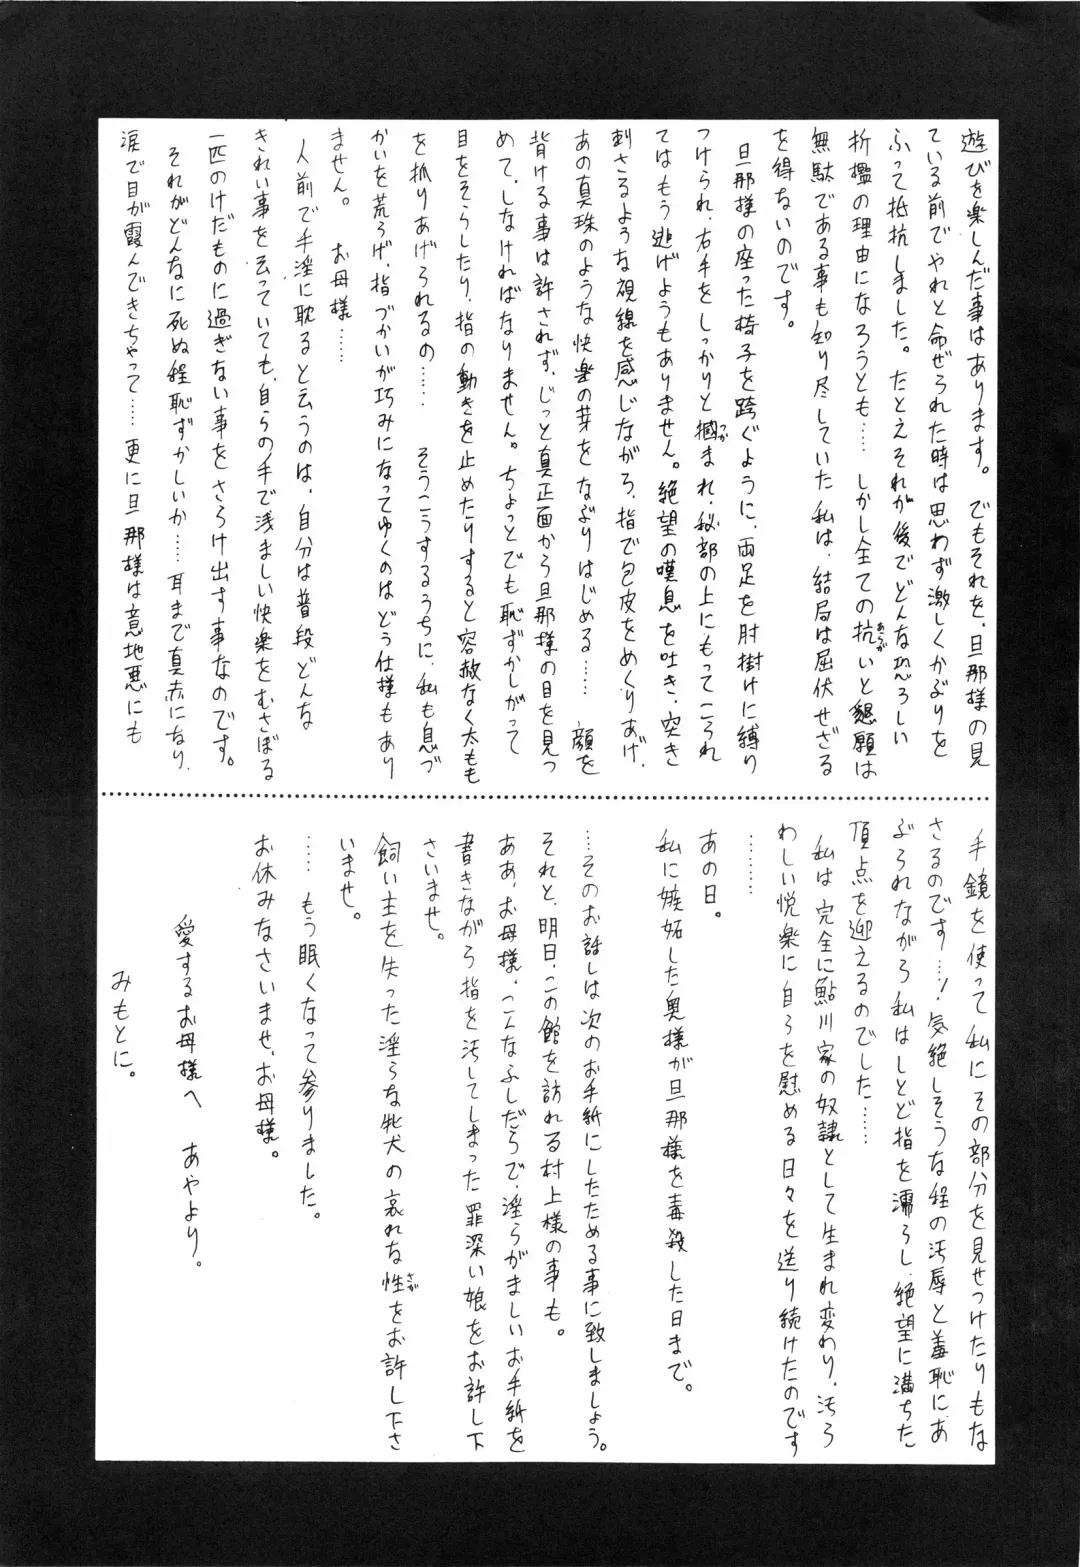 遊びを楽しんだ事はあります。でもそれを、旦那様の見
ている前でやれと命ぜられた時は思わず激しくかぶりを
ふって抵抗しました。たとえそれが後でどんな恐ろしい
折檻の理由になろうとも……しかし全ての抗いと懇願は
無駄である事も知り尽していた私は、結局は屈伏せざる
を得ないのです。
旦那様の座った椅子を跨ぐように、両足を肘掛けに縛り
つけられ、右手をしっかりと摑まれ、秘部の上にもってこられ
てはもう逃げようもありません。絶望の嘆息を吐き、突き
刺さるような視線を感じながら、指で包皮をめくりあげ、
あの真珠のような快楽の芽をなぶりはじめる……顔を
背ける事は許されず、じっと真正面から旦那様の目を見つ
めて、しなければなりません。ちょっとでも恥ずかしがって
目をそらしたり、指の動きを止めたりすると容赦なく太もも
を抓りあげられるの……そうこうするうちに、私も息づ
かいを荒らげ、指づかいが巧みになってゆくのはどう仕様もあり
ません。お母様……
人前で手淫に耽ると云うのは、自分は普段どんな
きれい事を云っていても、自らの手で浅ましい快楽をむさぼる
一匹のけだものに過ぎない事をさらけ出す事なのです。
それがどんなに死ぬ程恥ずかしいか……耳まで真赤になり、
涙で目が霞んできちゃって……更に旦那様は意地悪にも
手鏡を使って私にその部分を見せつけたりもな
さるのです…ッ!気絶しそうな程の汚辱と羞恥にあ
ぶられながら私はしとど指を濡らし、絶望に満ちた
頂点を迎えるのでした……
私は完全に鮎川家の奴隷として生まれ変わり、汚ら
わしい悦楽に自らを慰める日々を送り続けたのです
………
あの日。
私に嫉妬した奥様が旦那様を毒殺した日まで。
…そのお話しは次のお手紙にしたためる事に致しましょう。
それと、明日、この館を訪れる村上様の事も。
ああ、お母様、こんなふしだらで、淫らがましいお手紙を
書きながら指を汚してしまった罪深い娘をお許し下
さいませ。
飼い主を失った淫らな牝犬の哀れな性をお許し下さ
いませ。
……もう眠くなって参りました。
お休みなさいませ、お母様。
愛するお母様へ あやより。
みもとに。